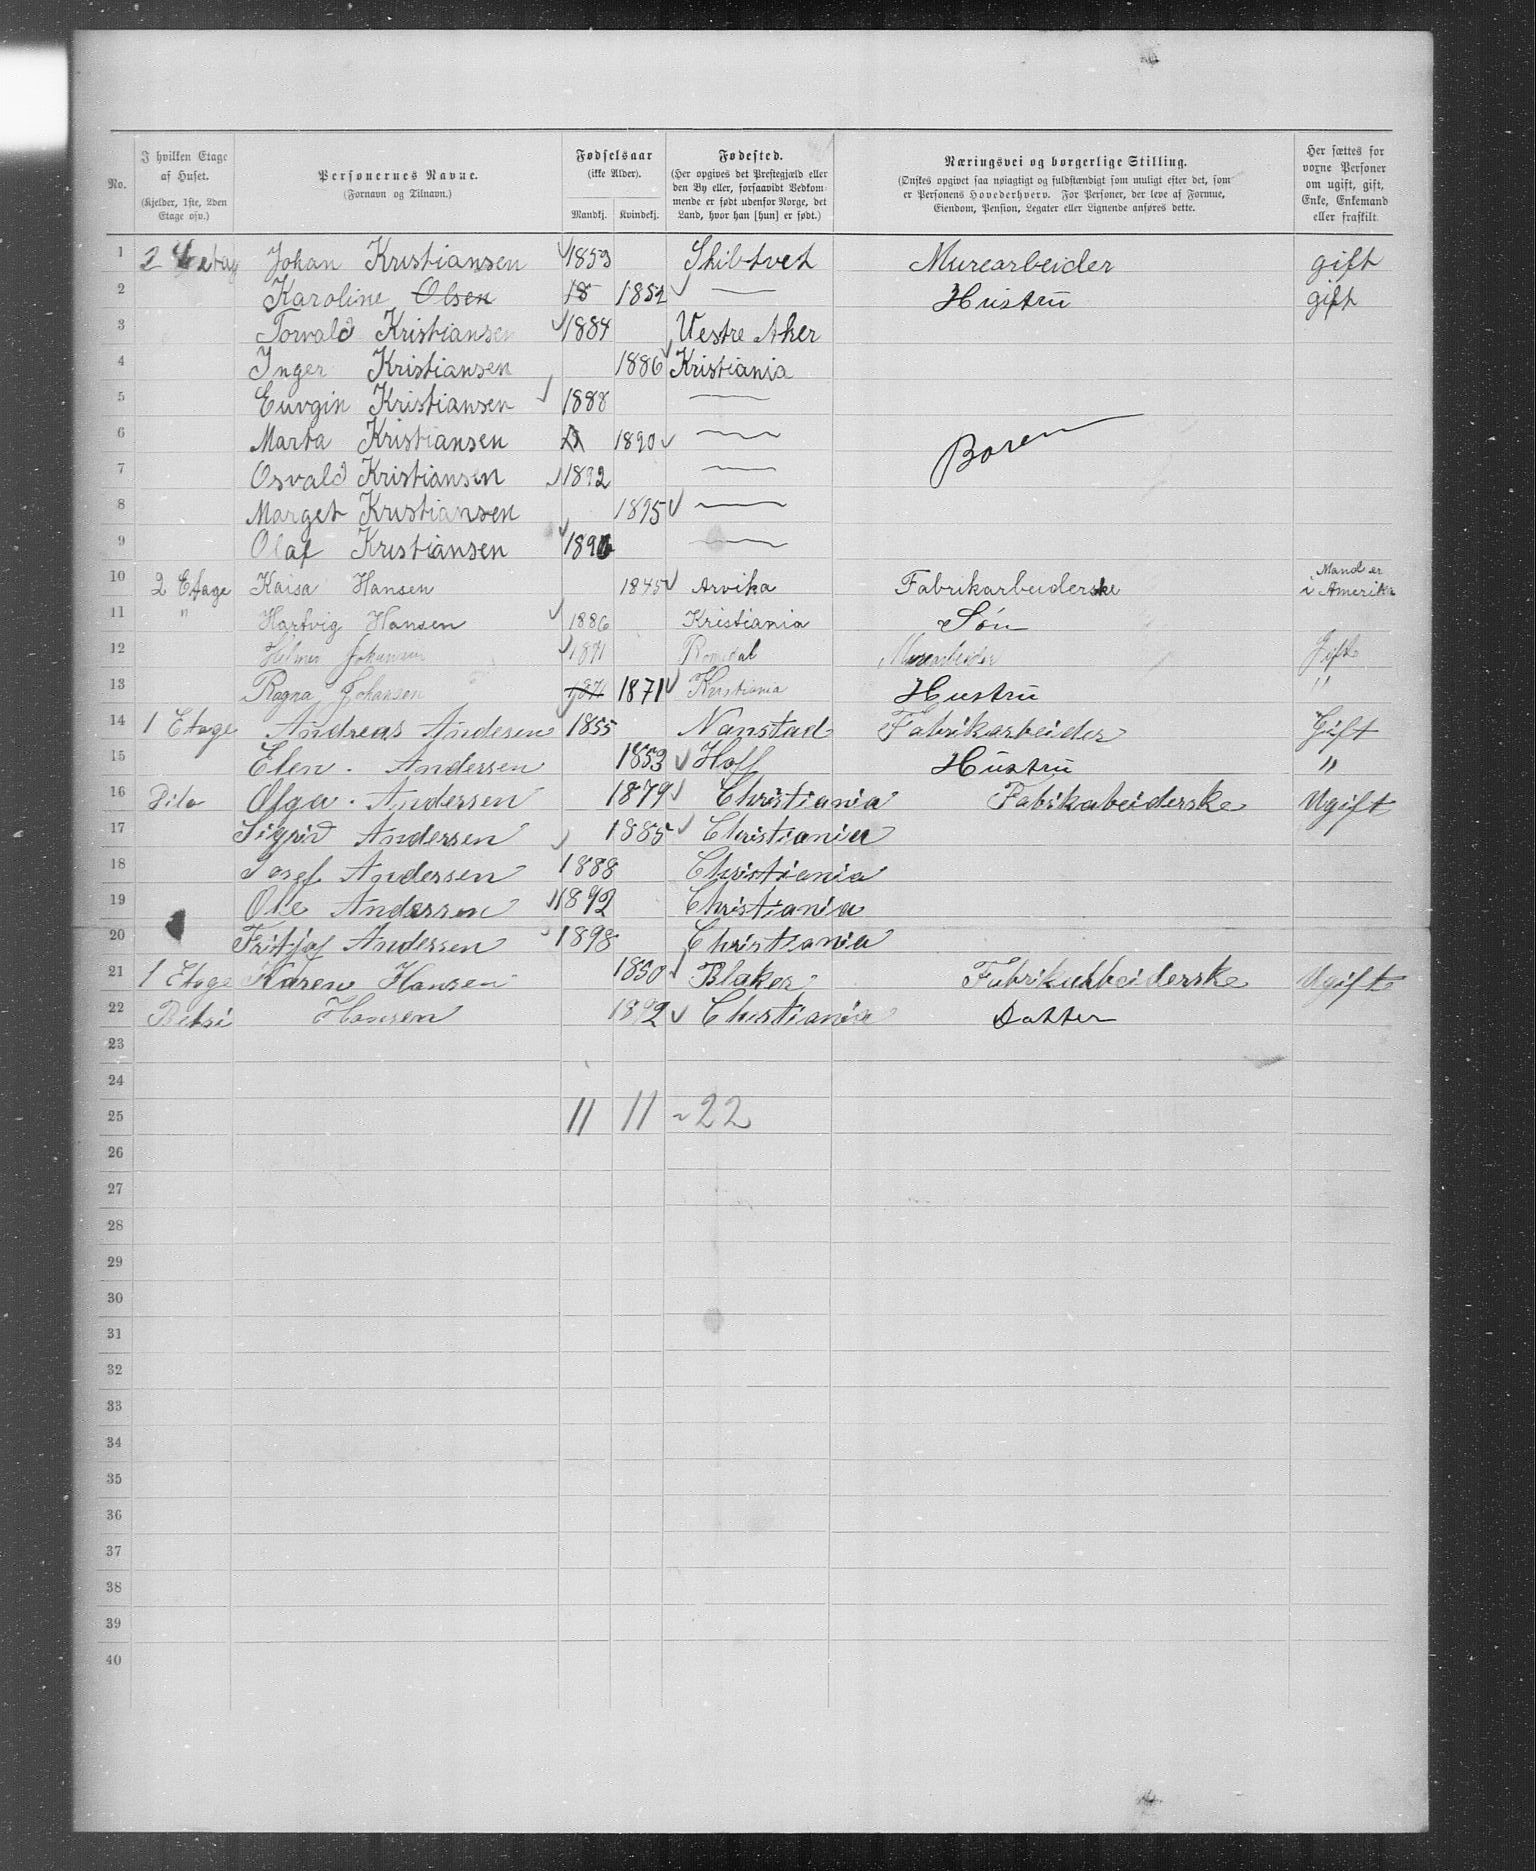 No.
I hvilken Etage af Huset.
(Kjelder, 1ste, 2den Etage osv.)
Personernes Navne.
(Fornavn og Tilnavn.)
Fødselsaar
(ikke Alder).
Mandkj. Kvindekj.
Fødested.
(Her opgives det Prestegjæld eller
den By eller, forsaavidt Vedkom-
mende er født udenfor Norge, det
Land, hvor han [hun] er født.)
Næringsvei og borgerlige Stilling.
(Ønskes opgivet saa nøiagtigt og fuldstændigt som muligt efter det, som
er Personens Hovederhverv. For Personer, der leve af Formue,
Eiendom, Pension, Legater eller Lignende anføres dette.
Her sættes for
voxne Personer
om ugift, gift,
Enke, Enkemand
eller fraskilt.
1 2 etag Johan Kristiansen 1853 Skibtvet Murearbeider gift
2 Karoline Olsen 18 1852 — Hustru gift
3 Torvald Kristiansen 1884 Vestre Aker
4 Inger Kristiansen 1886 Kristiania
5 Euvgin Kristiansen 1888 —
6 Marta Kristiansen 1890 — Boren
7 Osvald Kristiansen 1892 —
8 Marget Kristiansen 1895 —
9 Olaf Kristiansen 1896 —
10 2 Etage Kaisa Hansen 1845 Arvika Fabrikarbeiderske Mand er i Amerika
11 " Hartvig Hansen 1886 Kristiania Søn
12 Johansen 1871 Romedal Murearbeider Gift
13 Ragna Johansen 1871 1871 Kristiania Hustru "
14 1 Etage Andreas Andesen 1855 Nanstad Fabrikarbeider Gift
15 Elen. Andersen 1853 Hoff Hustru "
16 Dito Olga. Andersen 1879 Christiania Fabikabeiderske Ugift
17 Sigrid Andersen 1885 Christiania
18 Josef Andersen 1888 Christiania
19 Ole Andersen 1892 Christiania
20 Fritjof Andersen 1898 Christiania
21 1 Etage Karen Hansen 1850 Blaker Fabrikarbeiderske Ugift
22 Betsi Hansen 1892 Christiania Datter
23
24
25 11 11 ~ 22
26
27
28
29
30
31
32
33
34
35
36
37
38
39
40